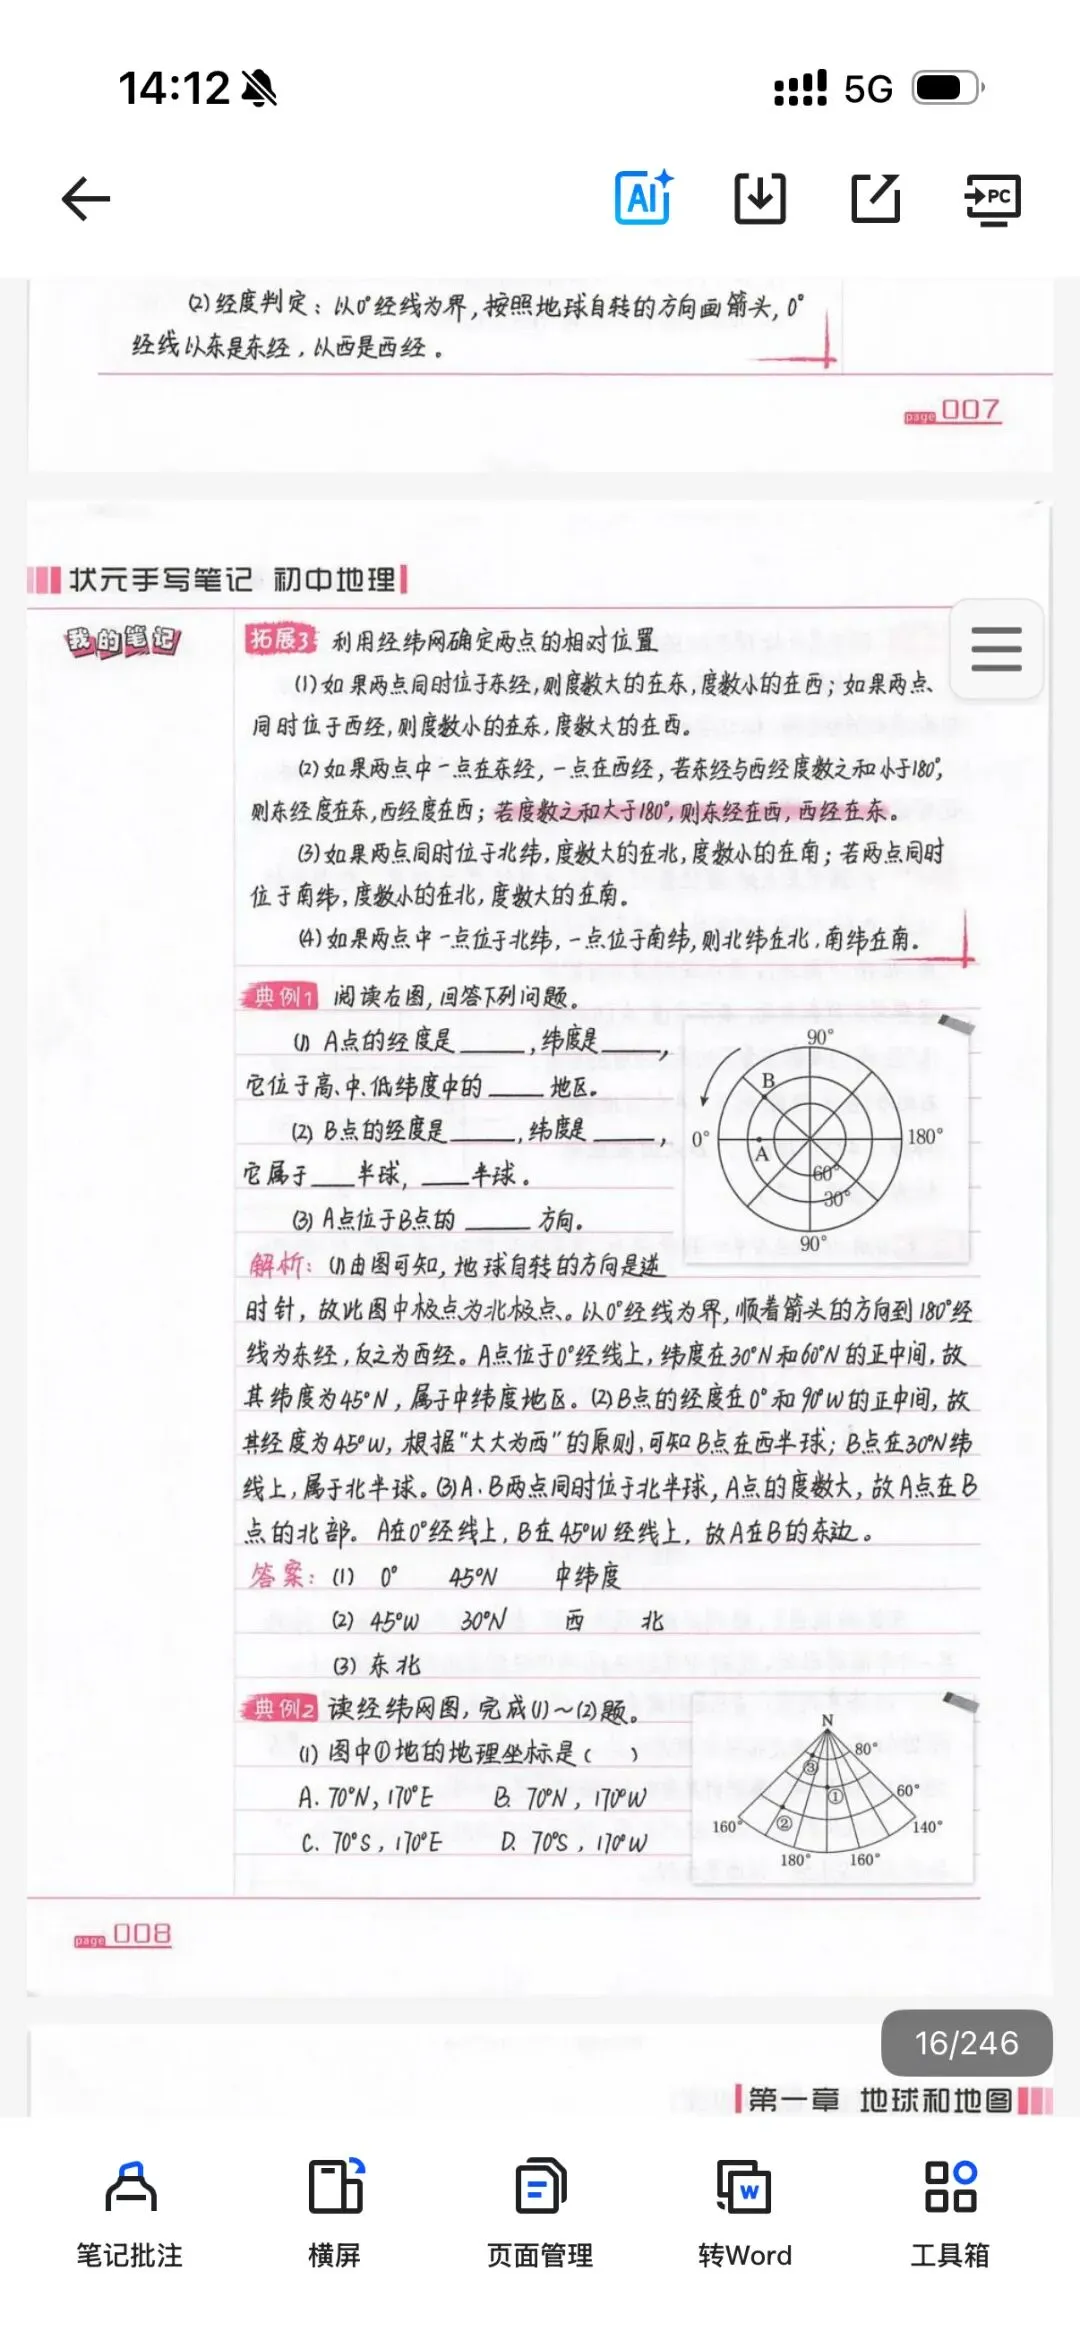 14:12
5G
AI
PC
(2)经度判定：以0°经线为界，按照地球自转的方向画箭头，0°
经线以东是东经，以西是西经。
page 007
状元手写笔记 初中地理
我的笔记
拓展3 利用经纬网确定两点的相对位置
(1)如果两点同时位于东经，则度数大的在东，度数小的在西；如果两点
同时位于西经，则度数小的在东，度数大的在西。
(2)如果两点中一点在东经，一点在西经，若东经与西经度数之和小于180°，
则东经度在东，西经度在西；若度数之和大于180°，则东经在西，西经在东。
(3)如果两点同时位于北纬，度数大的在北，度数小的在南；若两点同时
位于南纬，度数小的在北，度数大的在南。
(4)如果两点中一点位于北纬，一点位于南纬，则北纬在北，南纬在南。
典例1 阅读右图，回答下列问题。
(1) A点的经度是____，纬度是____，
它位于高、中、低纬度中的____地区。
(2) B点的经度是____，纬度是____，
它属于___半球，___半球。
(3) A点位于B点的____方向。
90°
B
0°
180°
A
60°
30°
90°
解析：(1)由图可知，地球自转的方向是逆
时针，故此图中极点为北极点。以0°经线为界，顺着箭头的方向到180°经
线为东经，反之为西经。A点位于0°经线上，纬度在30°N和60°N的正中间，故
其纬度为45°N，属于中纬度地区。(2)B点的经度在0°和90°W的正中间，故
其经度为45°W，根据“大大为西”的原则，可知B点在西半球；B点在30°N纬
线上，属于北半球。(3)A、B两点同时位于北半球，A点的度数大，故A点在B
点的北部。A在0°经线上，B在45°W经线上，故A在B的东边。
答案：(1) 0° 45°N 中纬度
(2) 45°W 30°N 西 北
(3) 东北
典例2 读经纬网图，完成(1)～(2)题。
(1) 图中①地的地理坐标是( )
A. 70°N，170°E B. 70°N，170°W
C. 70°S，170°E D. 70°S，170°W
N
80°
③
60°
①
160°
②
140°
180°
160°
page 008
16/246
第一章 地球和地图
笔记批注
横屏
页面管理
W
转Word
工具箱